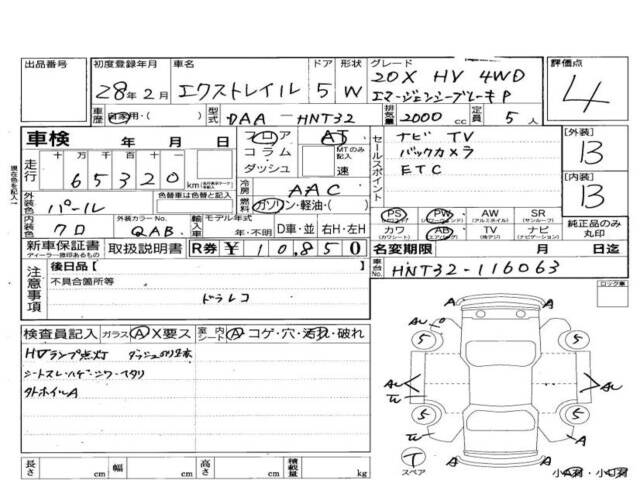 出品番号 初度登録年月 車名 ドア 形状 グレード 評価点
28年2月 エクストレイル 5 W 20X HV 4WD
エマージェンシーブレーキP 4
車歴 自家用・( ) 型式 DAA-HNT32 排気量 2000 cc 定員 5 人
車検 年 月 日 フロア AT セールスポイント ナビ TV [外装]
コラム MTのみ記入 バックカメラ B
走行 十 万 千 百 十 一 ダッシュ 速 ETC
65320 km 冷房 AAC [内装]
外装色 パール 色替車は色替と記入 燃料 ガソリン・軽油・( ) B
PS PW AW SR
内装色 クロ 外装カラーNo. QAB 輸入車 モデル年式 年・不明 D車・並 右H・左H カワ AB TV ナビ 純正品のみ丸印
新車保証書 取扱説明書 R券 ¥10,850 名変期限 月 日迄
ディーラー印あるもの
注意事項 後日品【 】 車台No. HNT32-116063
不具合箇所等 ロック車
ドラレコ
検査員記入 ガラス A X要ス 室内シート A コゲ・穴・汚れ・破れ
HVランプ点灯
シートスレ・
タホイルA
長さ cm 幅 cm 高さ cm 積載量 kg
スペア T
現在色を記入
A A
AU
5 5
AU AU
5 5
A A